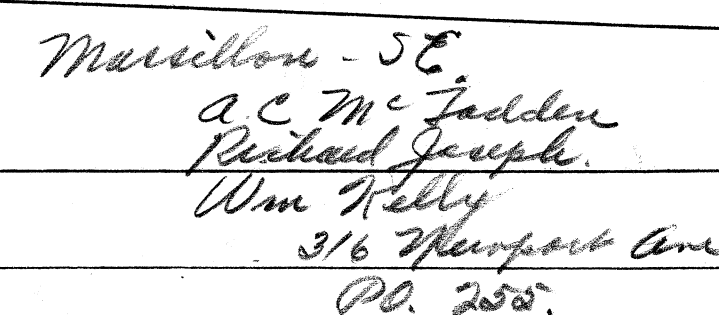 Massillon - SE.
A. C. McFadden
Richard Joseph.
Wm Kelly
316 Newport Ave
P.O. 255.